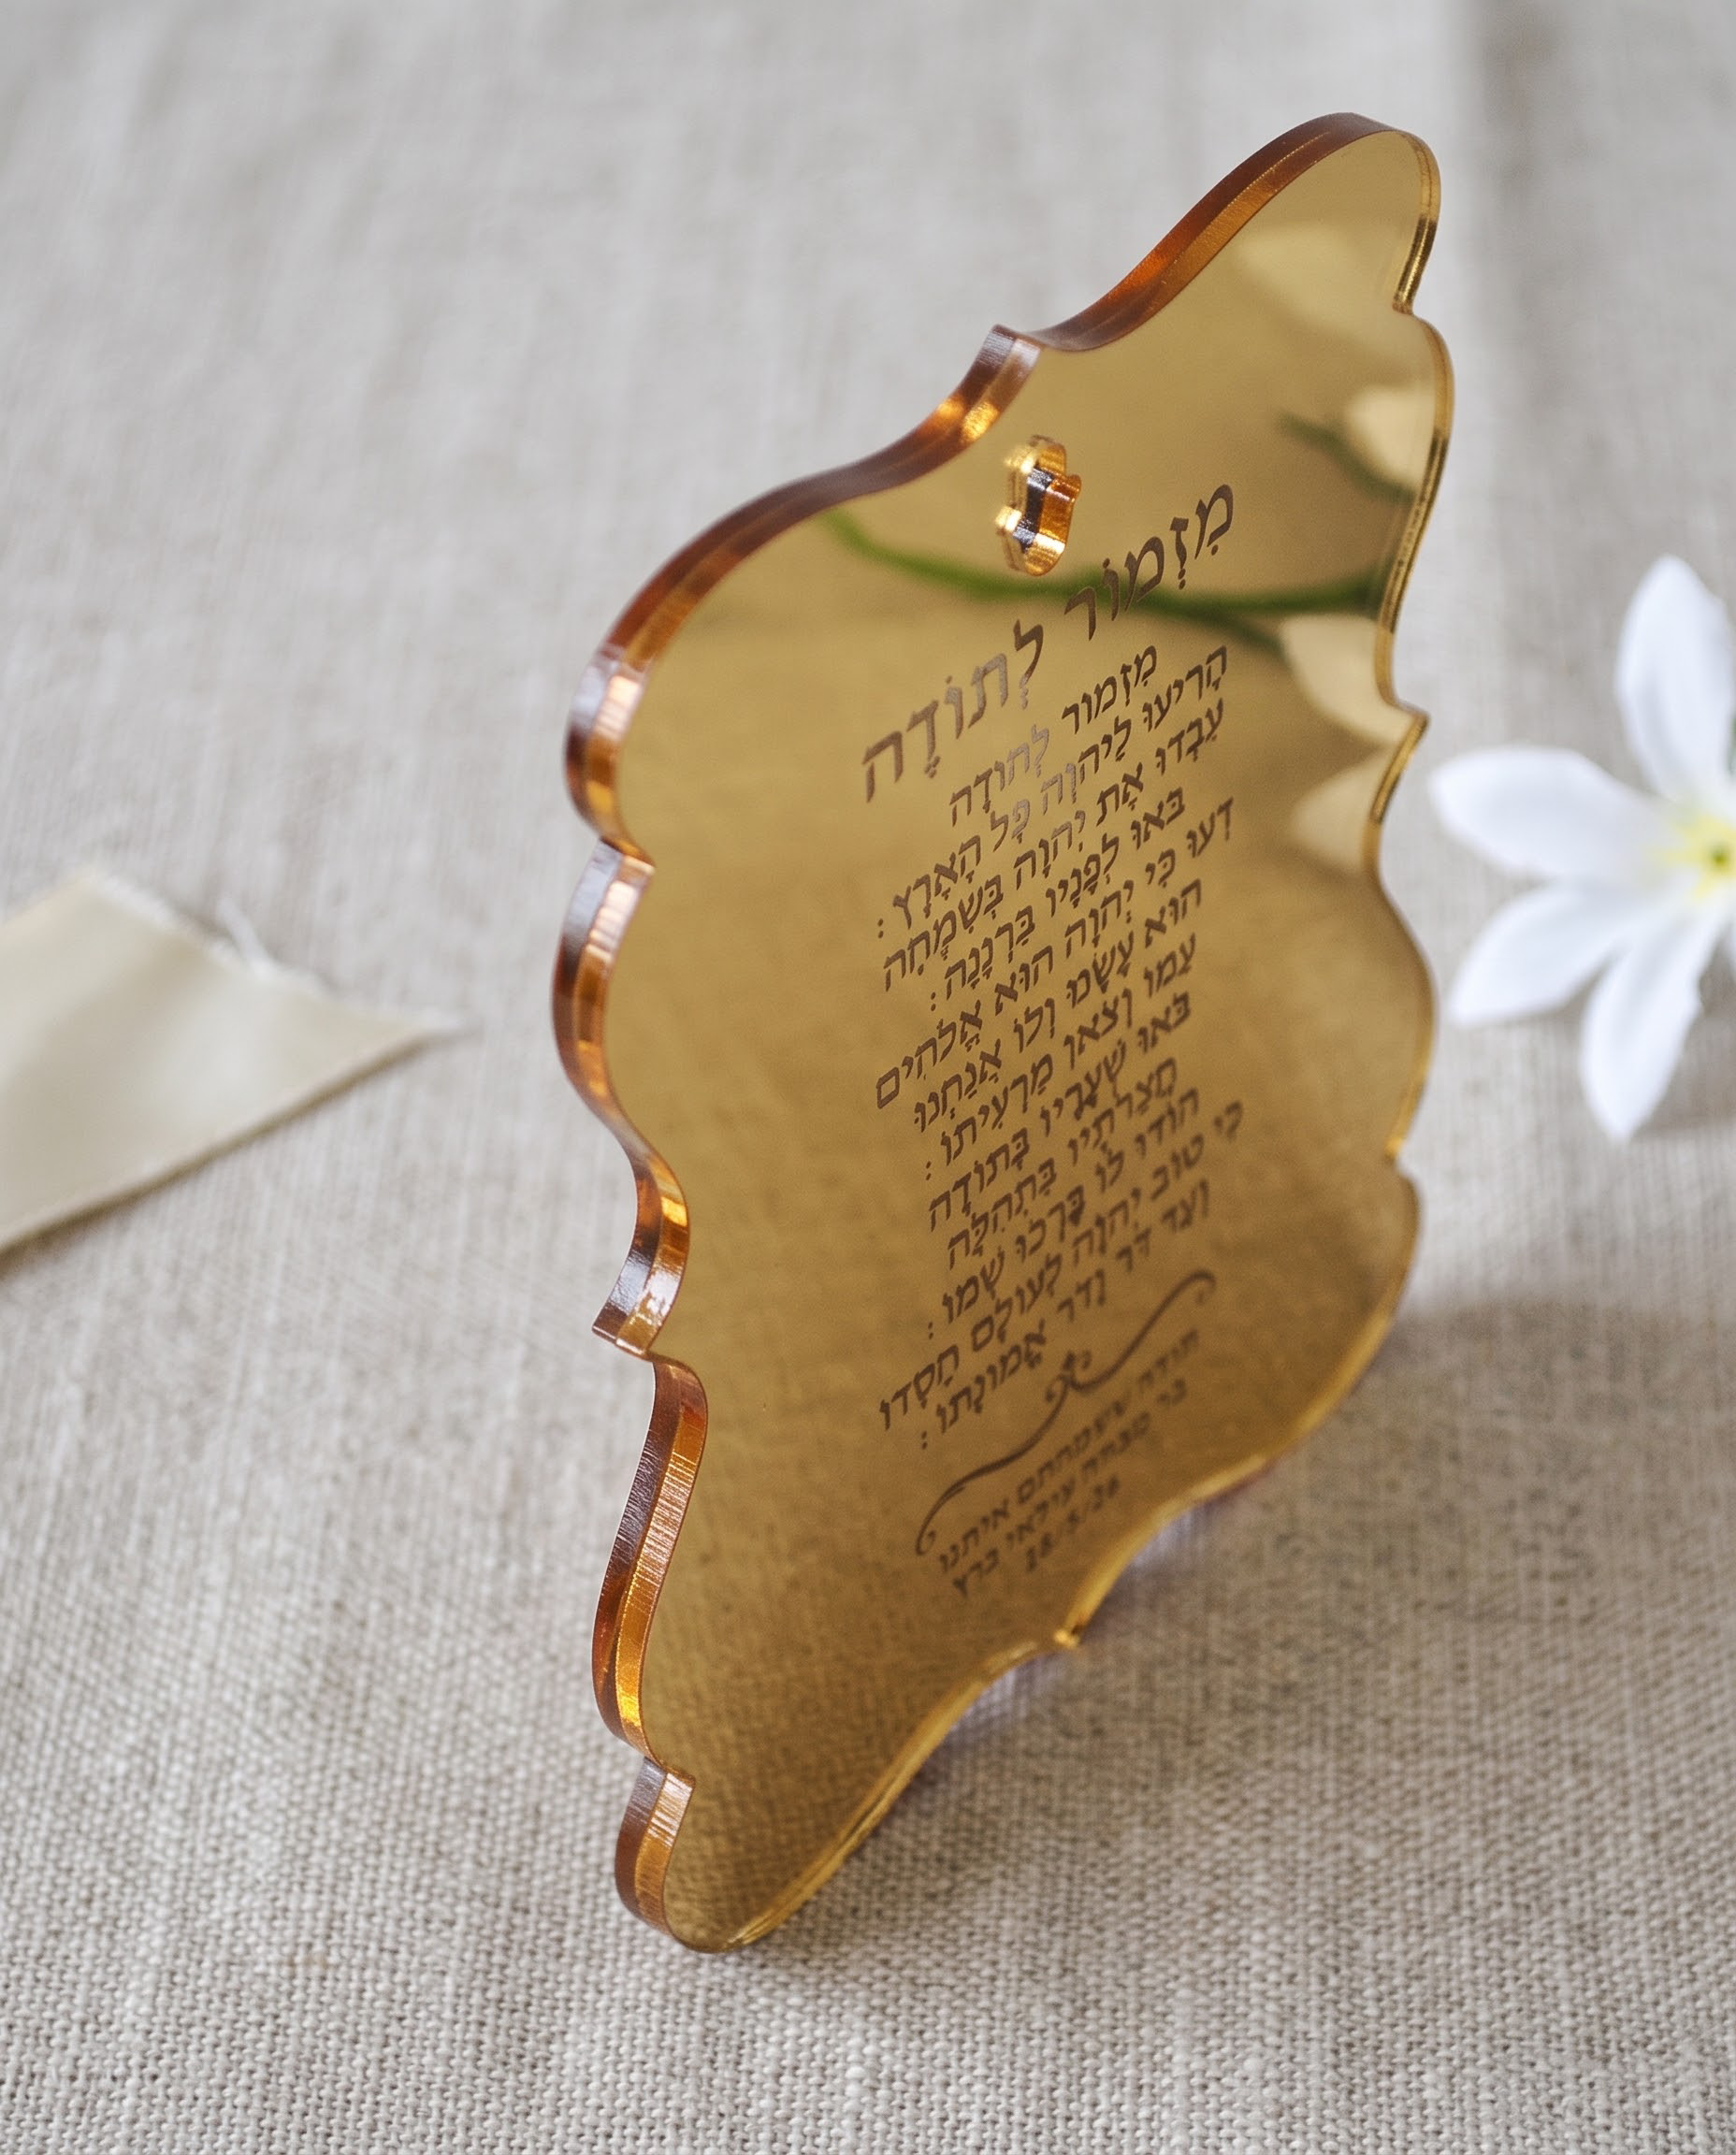 מִזְמוֹר לְתוֹדָה
מִזְמוֹר לְתוֹדָה
הָרִיעוּ לַיהוָה כָּל הָאָרֶץ:
עִבְדוּ אֶת יְהוָה בְּשִׂמְחָה
בֹּאוּ לְפָנָיו בִּרְנָנָה:
דְּעוּ כִּי יְהוָה הוּא אֱלֹהִים
הוּא עָשָׂנוּ וְלוֹ אֲנַחְנוּ
עַמּוֹ וְצֹאן מַרְעִיתוֹ:
בֹּאוּ שְׁעָרָיו בְּתוֹדָה
חֲצֵרֹתָיו בִּתְהִלָּה
הוֹדוּ לוֹ בָּרְכוּ שְׁמוֹ:
כִּי טוֹב יְהוָה לְעוֹלָם חַסְדּוֹ
וְעַד דֹּר וָדֹר אֱמוּנָתוֹ:
תודה ששמחתם איתנו
בר מצווה עילאי ברץ
18/5/26